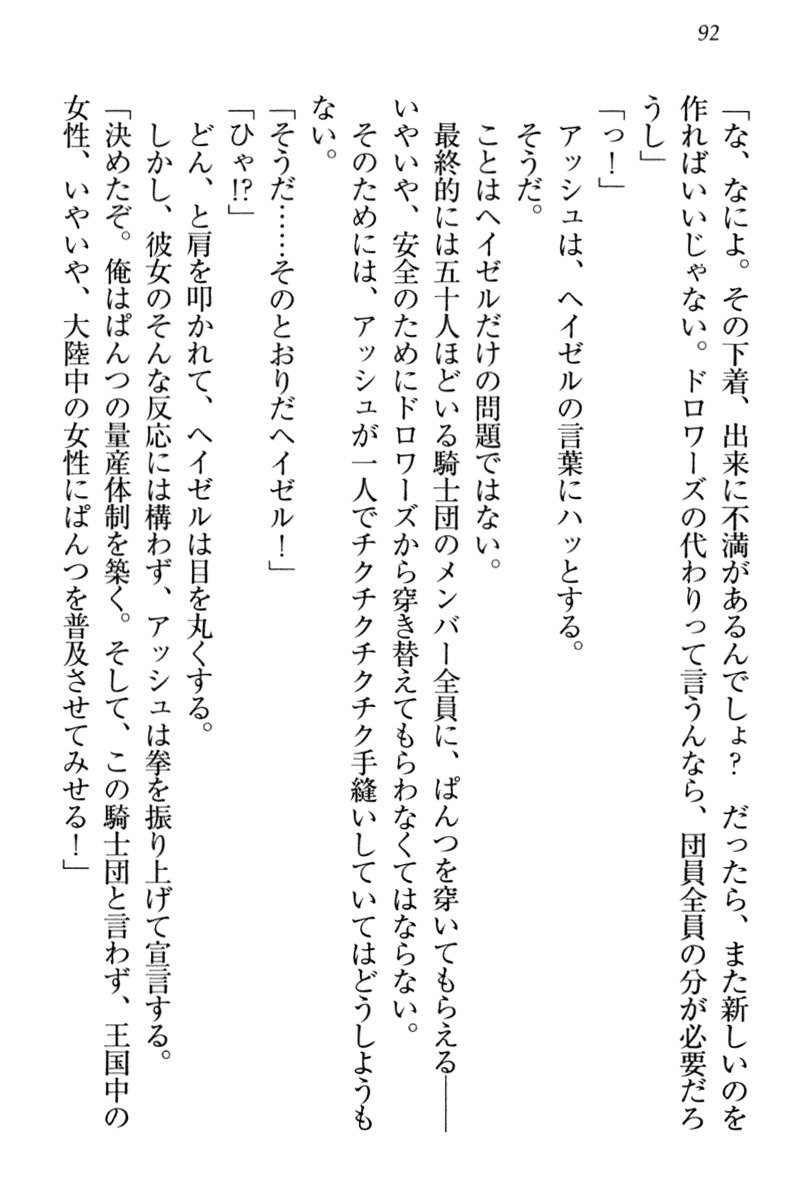 92
「な、なによ。その下着、出来に不満があるんでしょ？　だったら、また新しいのを
作ればいいじゃない。ドロワーズの代わりって言うんなら、団員全員の分が必要だろ
うし」
「っ！」
　アッシュは、ヘイゼルの言葉にハッとする。
　そうだ。
　ことはヘイゼルだけの問題ではない。
　最終的には五十人ほどいる騎士団のメンバー全員に、ぱんつを穿いてもらえる――
いやいや、安全のためにドロワーズから穿き替えてもらわなくてはならない。
　そのためには、アッシュが一人でチクチクチクチク手縫いしていてはどうしようも
ない。
「そうだ……そのとおりだヘイゼル！」
「ひゃ!?」
　どん、と肩を叩かれて、ヘイゼルは目を丸くする。
　しかし、彼女のそんな反応には構わず、アッシュは拳を振り上げて宣言する。
「決めたぞ。俺はぱんつの量産体制を築く。そして、この騎士団と言わず、王国中の
女性、いやいや、大陸中の女性にぱんつを普及させてみせる！」